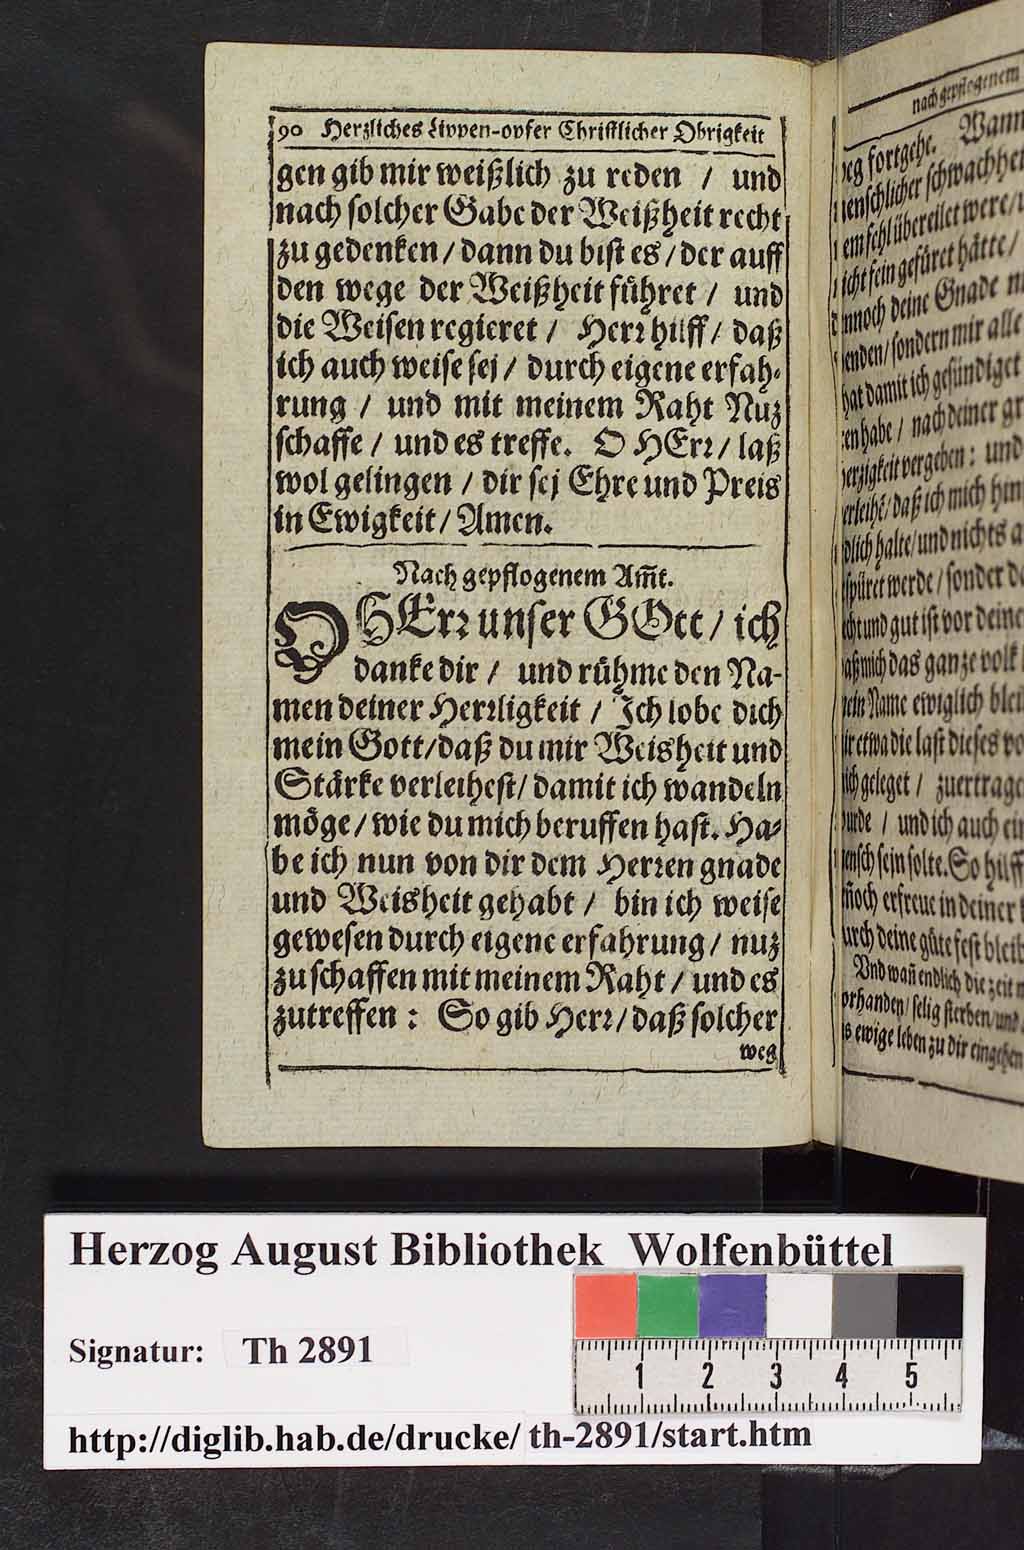 90 Herzliches Lippen-opfer Christlicher Obrigkeit
gen gib mir weißlich zu reden / und
nach solcher Gabe der Weißheit recht
zu gedenken / dann du bist es / der auff
den wege der Weißheit führet / und
die Weisen regieret / Herr hilff / daß
ich auch weise sej / durch eigene erfah-
rung / und mit meinem Raht Nuz
schaffe / und es treffe. O HErr / laß
wol gelingen / dir sej Ehre und Preis
in Ewigkeit / Amen.
Nach gepflogenem Am̃t.
O HErr unser GOtt / ich
danke dir / und rühme den Na-
men deiner Herrligkeit / Ich lobe dich
mein Gott/daß du mir Weisheit und
Stärke verleihest/ damit ich wandeln
möge / wie du mich beruffen hast. Ha-
be ich nun von dir dem Herren gnade
und Weisheit gehabt / bin ich weise
gewesen durch eigene erfahrung / nuz
zu schaffen mit meinem Raht / und es
zutreffen : So gib Herr / daß solcher
weg
nach gepflogenem
weg fortgehe. Wann
menschlicher schwachheit
fehl übereilet were /
nicht fein gefüret hätte /
dennoch deine Gnade
wenden / sondern mir alle
hat damit ich gesündiget
habe / nach deiner
vergeben : und
verleihe / daß ich mich
halte / und nichts
gespüret werde / sonder
recht und gut ist vor deine
daß mich das ganze volk
mein Name ewiglich
etwa die last dieses
geleget / zuertrage
würde / und ich auch ein
Mensch sejn solte. So hilff
dennoch erfreue in deiner
durch deine güte fest
Und wañ endlich die zeit
vorhanden / selig sterben / und
ewige leben zu dir eingehen
Herzog August Bibliothek Wolfenbüttel
Signatur: Th 2891
1 2 3 4 5
http://diglib.hab.de/drucke/ th-2891/start.htm